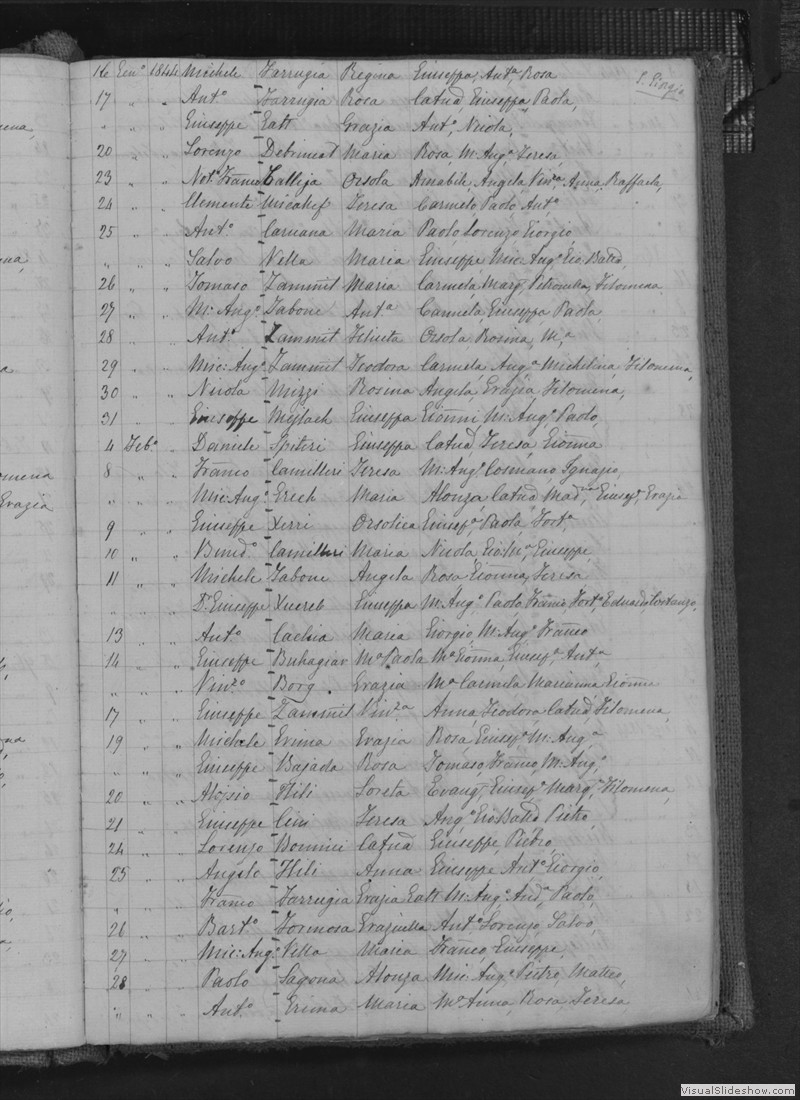 16 Gen.o 1844 Michele Farrugia Regina Giuseppa, Ant.a Rosa
S. Giorgio
17 " " Ant.o Farrugia Rosa Catna, Giuseppa, Paola,
" " " Giuseppe Gatt Grazia Ant.o, Nicola,
20 " " Lorenzo Debrincat Maria Rosa, M. Ang.a, Teresa,
23 " " Not.o Franco Calleja Orsola Amabile, Angela, Vinz.a, Anna, Raffaela,
24 " " Clemente Micallef Teresa Carmelo, Paolo, Ant.o
25 " " Ant.o Caruana Maria Paolo, Lorenzo, Giorgio
" " " Salvo Vella Maria Giuseppe, Mic: Ang.o, Gio Batta,
26 " " Tomaso Zammit Maria Carmela, Marg.a, Petronilla, Filomena,
27 " " M: Ang.o Tabone Ant.a Carmela, Giuseppa, Paola,
28 " " Ant.o Zammit Felicita Orsola, Rosina, M.a
29 " " Mic: Ang.o Zammit Teodora Carmela, Ang.a, Michelina, Filomena,
30 " " Nicola Mizzi Rosina Angela, Grazia, Filomena,
31 " " Giuseppe Mejlach Giuseppa Gionni, M: Ang.o, Paolo,
4 Feb.o " Daniele Spiteri Giuseppa Catna, Teresa, Gionna
8 " " Franco Camilleri Teresa M: Ang.o, Cosmano, Ignazio,
" " " Mic: Ang.o Grech Maria Alonza, Catna, Madna, Giusep.a, Grazia
9 " " Giuseppe Xerri Orsolica Giusep.a, Paola, Fort.a
10 " " Bened.o Camilleri Maria Nicola, Gio: M.a, Giuseppe,
11 " " Michele Tabone Angela Rosa, Gionna, Teresa
" " " Dr. Giuseppe Xuereb Giuseppa M: Ang.o, Paolo, Franco, Fort.o, Eduardo, Costanzo,
13 " " Ant.o Cachia Maria Giorgio, M: Ang.o, Franco
14 " " Giuseppe Buhagiar M.a Paola M.a Gionna, Giusep.a, Ant.a
" " " Vinz.o Borg Grazia M.a Carmela, Marianna, Gionna
17 " " Giuseppe Zammit Vinz.a Anna, Teodora, Catna, Filomena,
19 " " Michele Grima Grazia Rosa, Giusep.a, M: Ang.a
" " " Giuseppe Bajada Rosa Tomaso, Franco, M: Ang.o
20 " " Aloysio Hili Loreta Evang.a, Giusep.a, Marg.a, Filomena,
21 " " Giuseppe Cini Teresa Ang.o, Gio Batta, Pietro,
24 " " Lorenzo Bonnici Catna Giuseppe, Pietro,
25 " " Angelo Hili Anna Giuseppe, Ant.o, Giorgio,
" " " Franco Farrugia Grazia Gatt M: Ang.o, And.a, Paolo,
26 " " Bart.o Formosa Graziulla Ant.o, Lorenzo, Salvo,
27 " " Mic: Ang.o Vella Maria Franco, Giuseppe,
28 " " Paolo Sagona Alonza Mic: Ang.o, Pietro, Matteo,
" " " Ant.o Grima Maria M.a Anna, Rosa, Teresa
VisualSlideshow.com